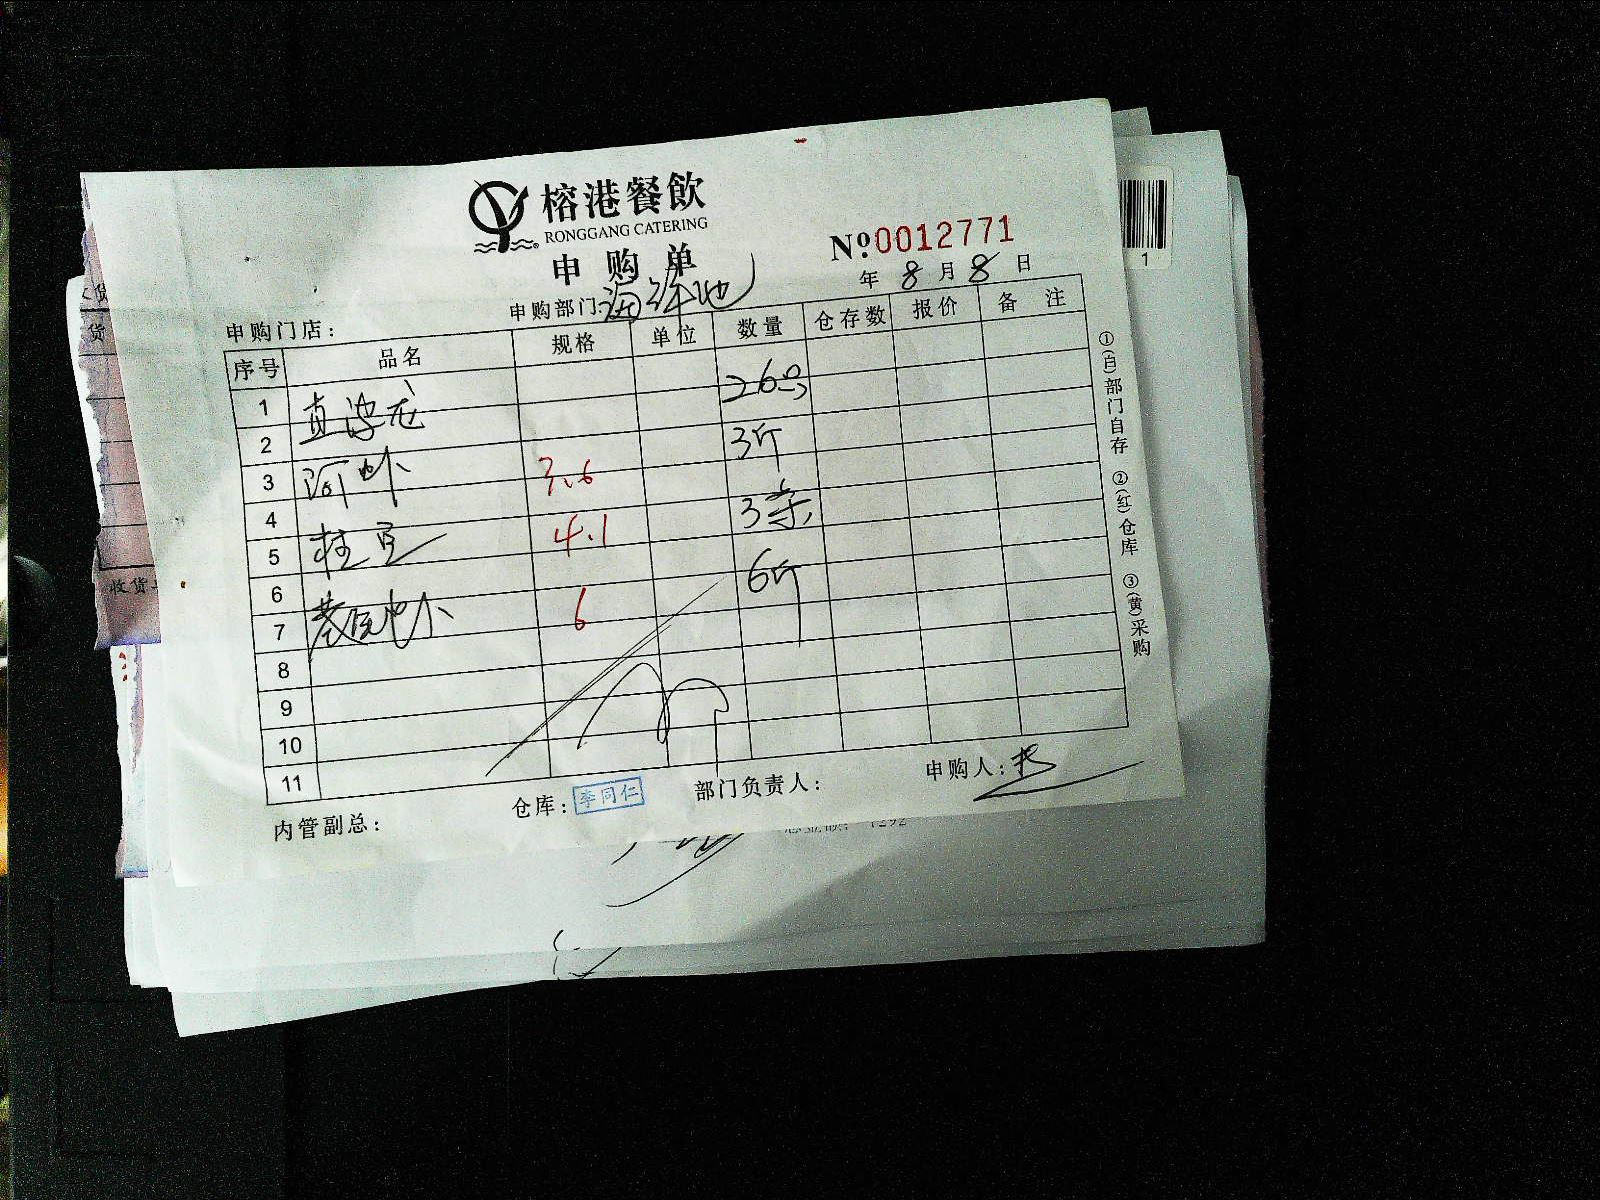 榕港餐飲
RONGGANG CATERING
申购单
№0012771
年 8 月 8 日
申购门店: 申购部门: 海鲜池
序号 品名 规格 单位 数量 仓存数 报价 备注
1 直波龙 26只
2
3 河虾 3.6 3斤
4
5 桂鱼 4.1 3条
6
7 基围虾 6 6斤
8
9
10
11
内管副总: 仓库: 李同仁 部门负责人: 申购人:
①(白)部门自存 ②(红)仓库 ③(黄)采购
1
货
收货
1292